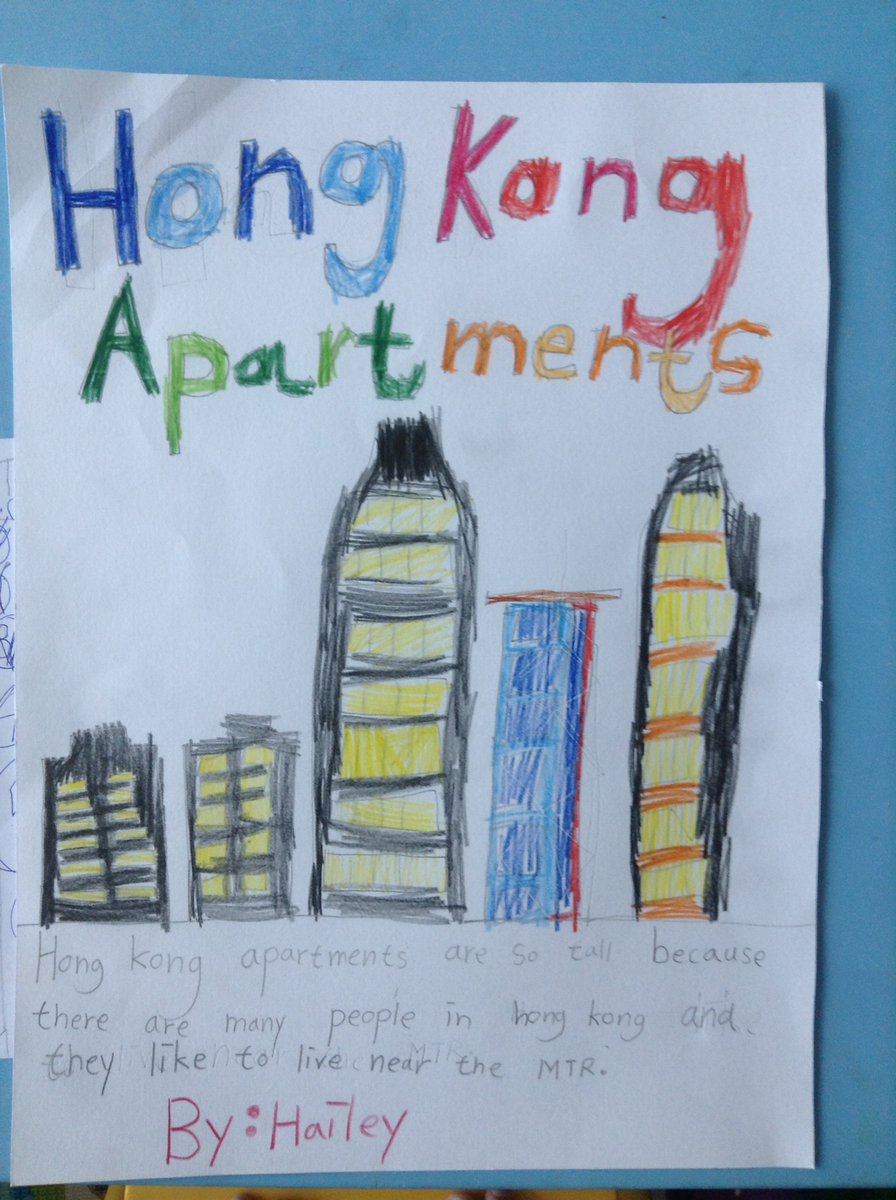 Hong Kong
Apartments
Hong kong apartments are so tall because
there are many people in hong kong and
they like to live near the MTR.
By: Hailey